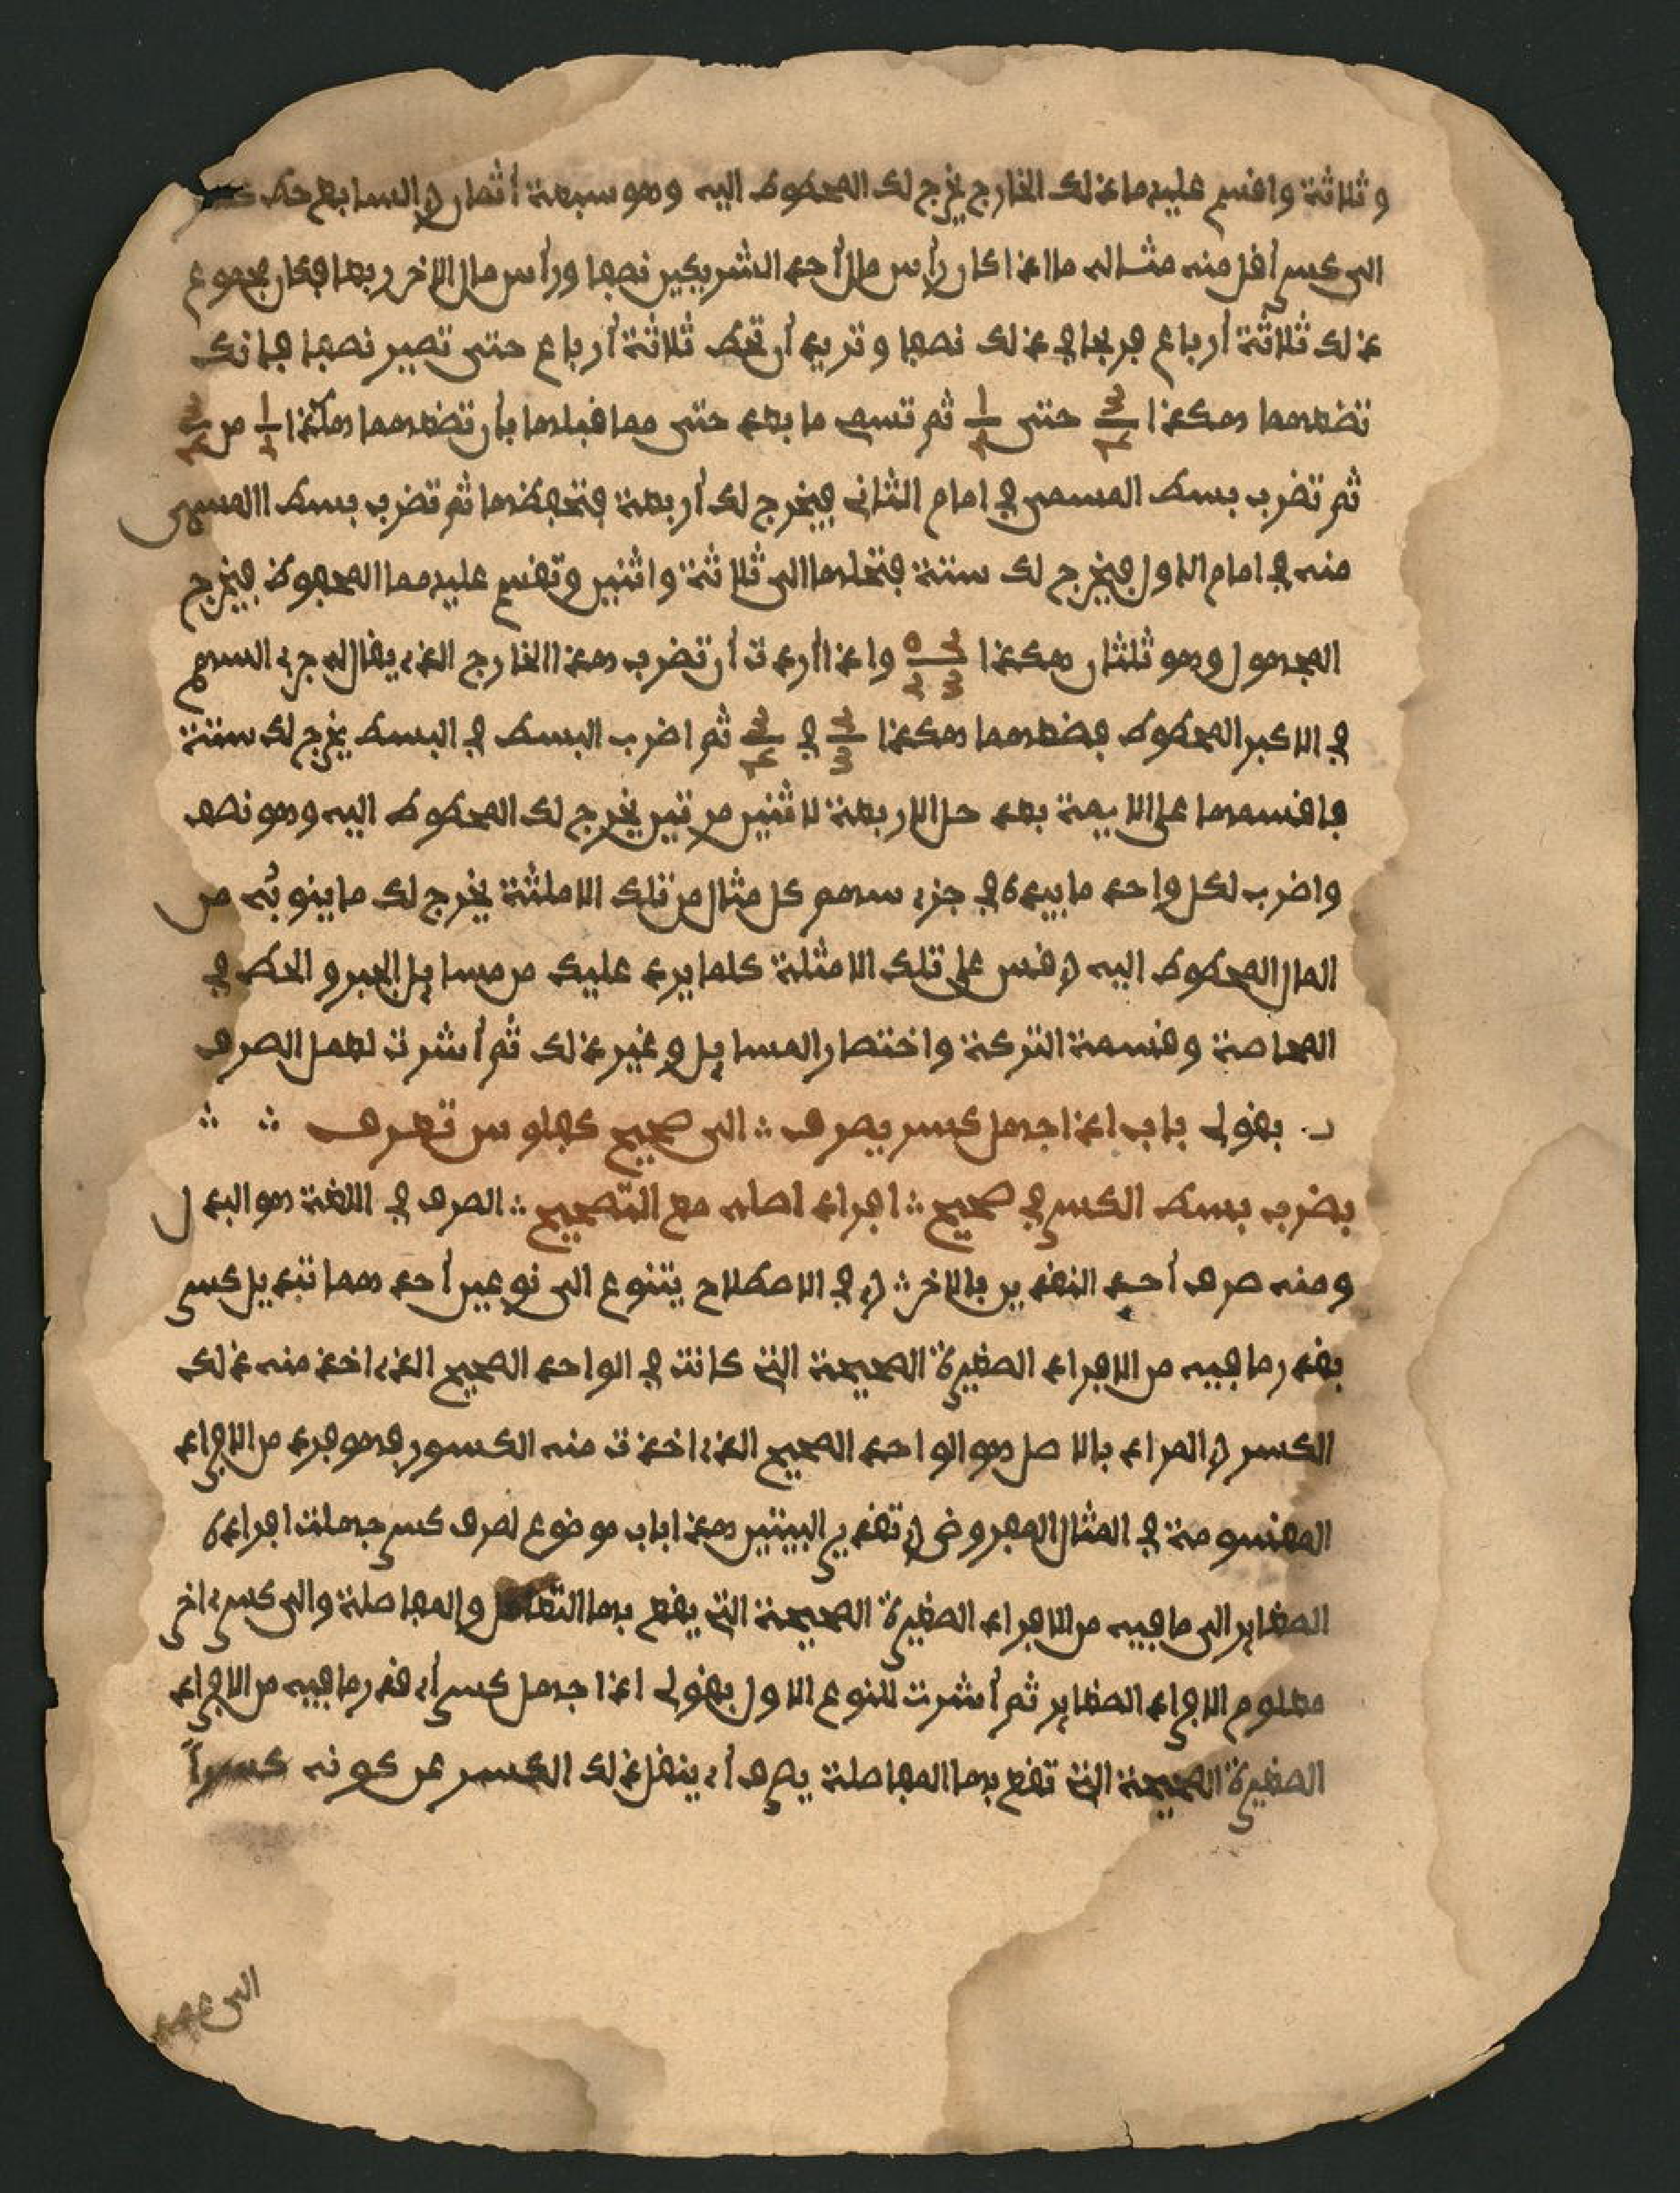 وثلاثة واقسم عليه ما عز لك الخارج يخرج لك المحطوط اليه وهو سبعة أثمان السابع حط كسر
الى كسر أقل منه مثاله ما اذا كان رأس مال أحد الشريكين نصفا ورأس مال الاخر ربعا فكان مجموع
ذلك ثلاثة أرباع فرجا في ذلك نصفا وتريد أن تحط ثلاثة أرباع حتى تصير نصفا فانك
تضعهما هكذا 3/4 حتى 1/2 ثم تسمي ما بعد حتى مما قبلها بأن تضعهما هكذا 1/2 من 3/4
ثم تضرب بسط المسمى في امام الثاني فيخرج لك أربعة فتحفظها ثم تضرب بسط المسمى
منه في امام الاول فيخرج لك ستة فتحلها الى ثلاثة واثنين وتقسم عليهما المحفوظ فيخرج
المجهول وهو ثلثان هكذا 2 0/3 2 واذا أردت أن تضرب هذا الخارج الذي يقال له جزء السهم
في الاكبر المحطوط فضعهما هكذا 2/3 في 3/4 ثم اضرب البسط في البسط يخرج لك ستة
فاقسمها على الايمة بعد حل الاربعة لاثنين مرتين يخرج لك المحطوط اليه وهو نصف
واضرب لكل واحد ما بيده في جزء سهم كل مثال من تلك الامثلة يخرج لك ما ينوبه من
المال المحطوط اليه وقس على تلك الامثلة كلما يرد عليك من مسايل الجبر والحط في
المحاصة وقسمة التركة واختصار المسايل وغير ذلك ثم أشرت لعمل الصرف
بقولي باب اذا جهل كسر يصرف ∴ الى صحيح كفلوس تعرف ∴ ∴
بضرب بسط الكسر في صحيح ∴ افراد اصله مع التصحيح ∴ الصرف في اللغة هو البدل
ومنه صرف أحد النقدين بالاخر ∴ و في الاصطلاح يتنوع الى نوعين أحدهما تبديل كسر
بقدر ما فيه من الافراد الصغيرة الصحيحة التي كانت في الواحد الصحيح الذي اخذ منه ذلك
الكسر و المراد بالاصل هو الواحد الصحيح الذي اخذت منه الكسور فهو فرد من الافراد
المقسومة في المثال المفروض و تقدير البيتين هذا باب موضوع لصرف كسر جهلت افراده
الصغاير الى ما فيه من الافراد الصغيرة الصحيحة التي يقع بها التعامل والمفاصلة والى كسر اخر
معلوم الافراد الصغاير ثم أشرت للنوع الاول بقولي اذا جهل كسر أي قدر ما فيه من الافراد
الصغيرة الصحيحة التي تقع بها المفاصلة يصرف أي ينقل ذلك الكسر عن كونه كسراً
الى عدد